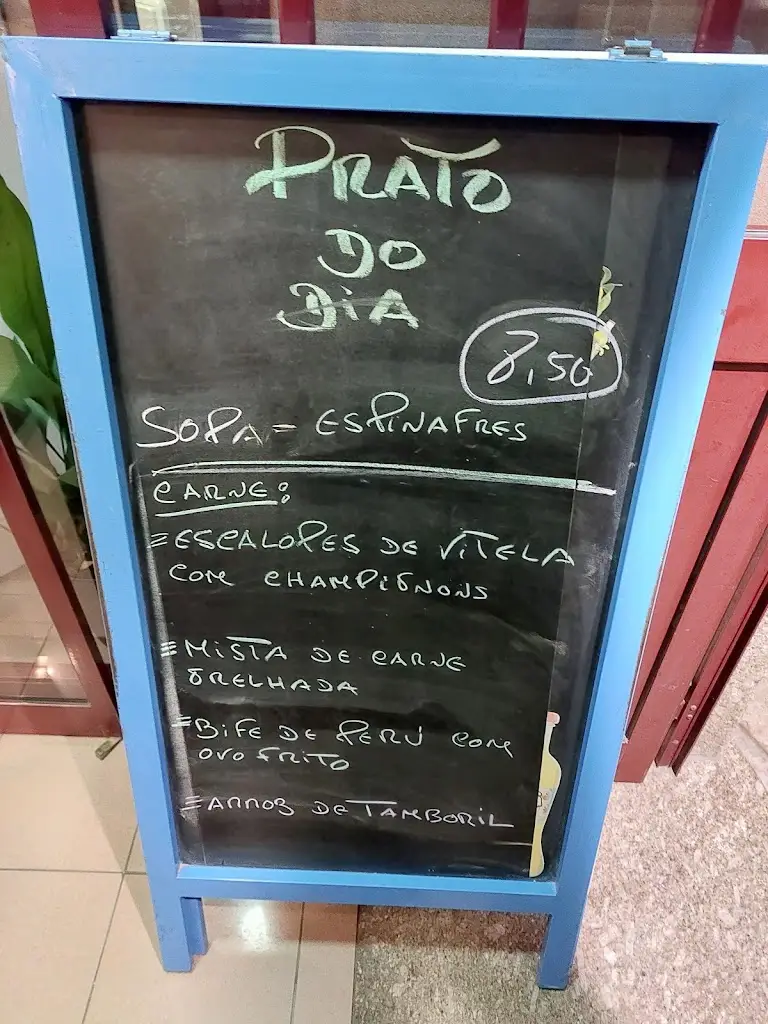 PRATO
DO
DIA
8,50
SOPA - ESPINAFRES
CARNE:
= ESCALOPES DE VITELA
COM CHAMPIGNONS
= MISTA DE CARNE
GRELHADA
= BIFE DE PERU COM
OVO FRITO
= ARROZ DE TAMBORIL